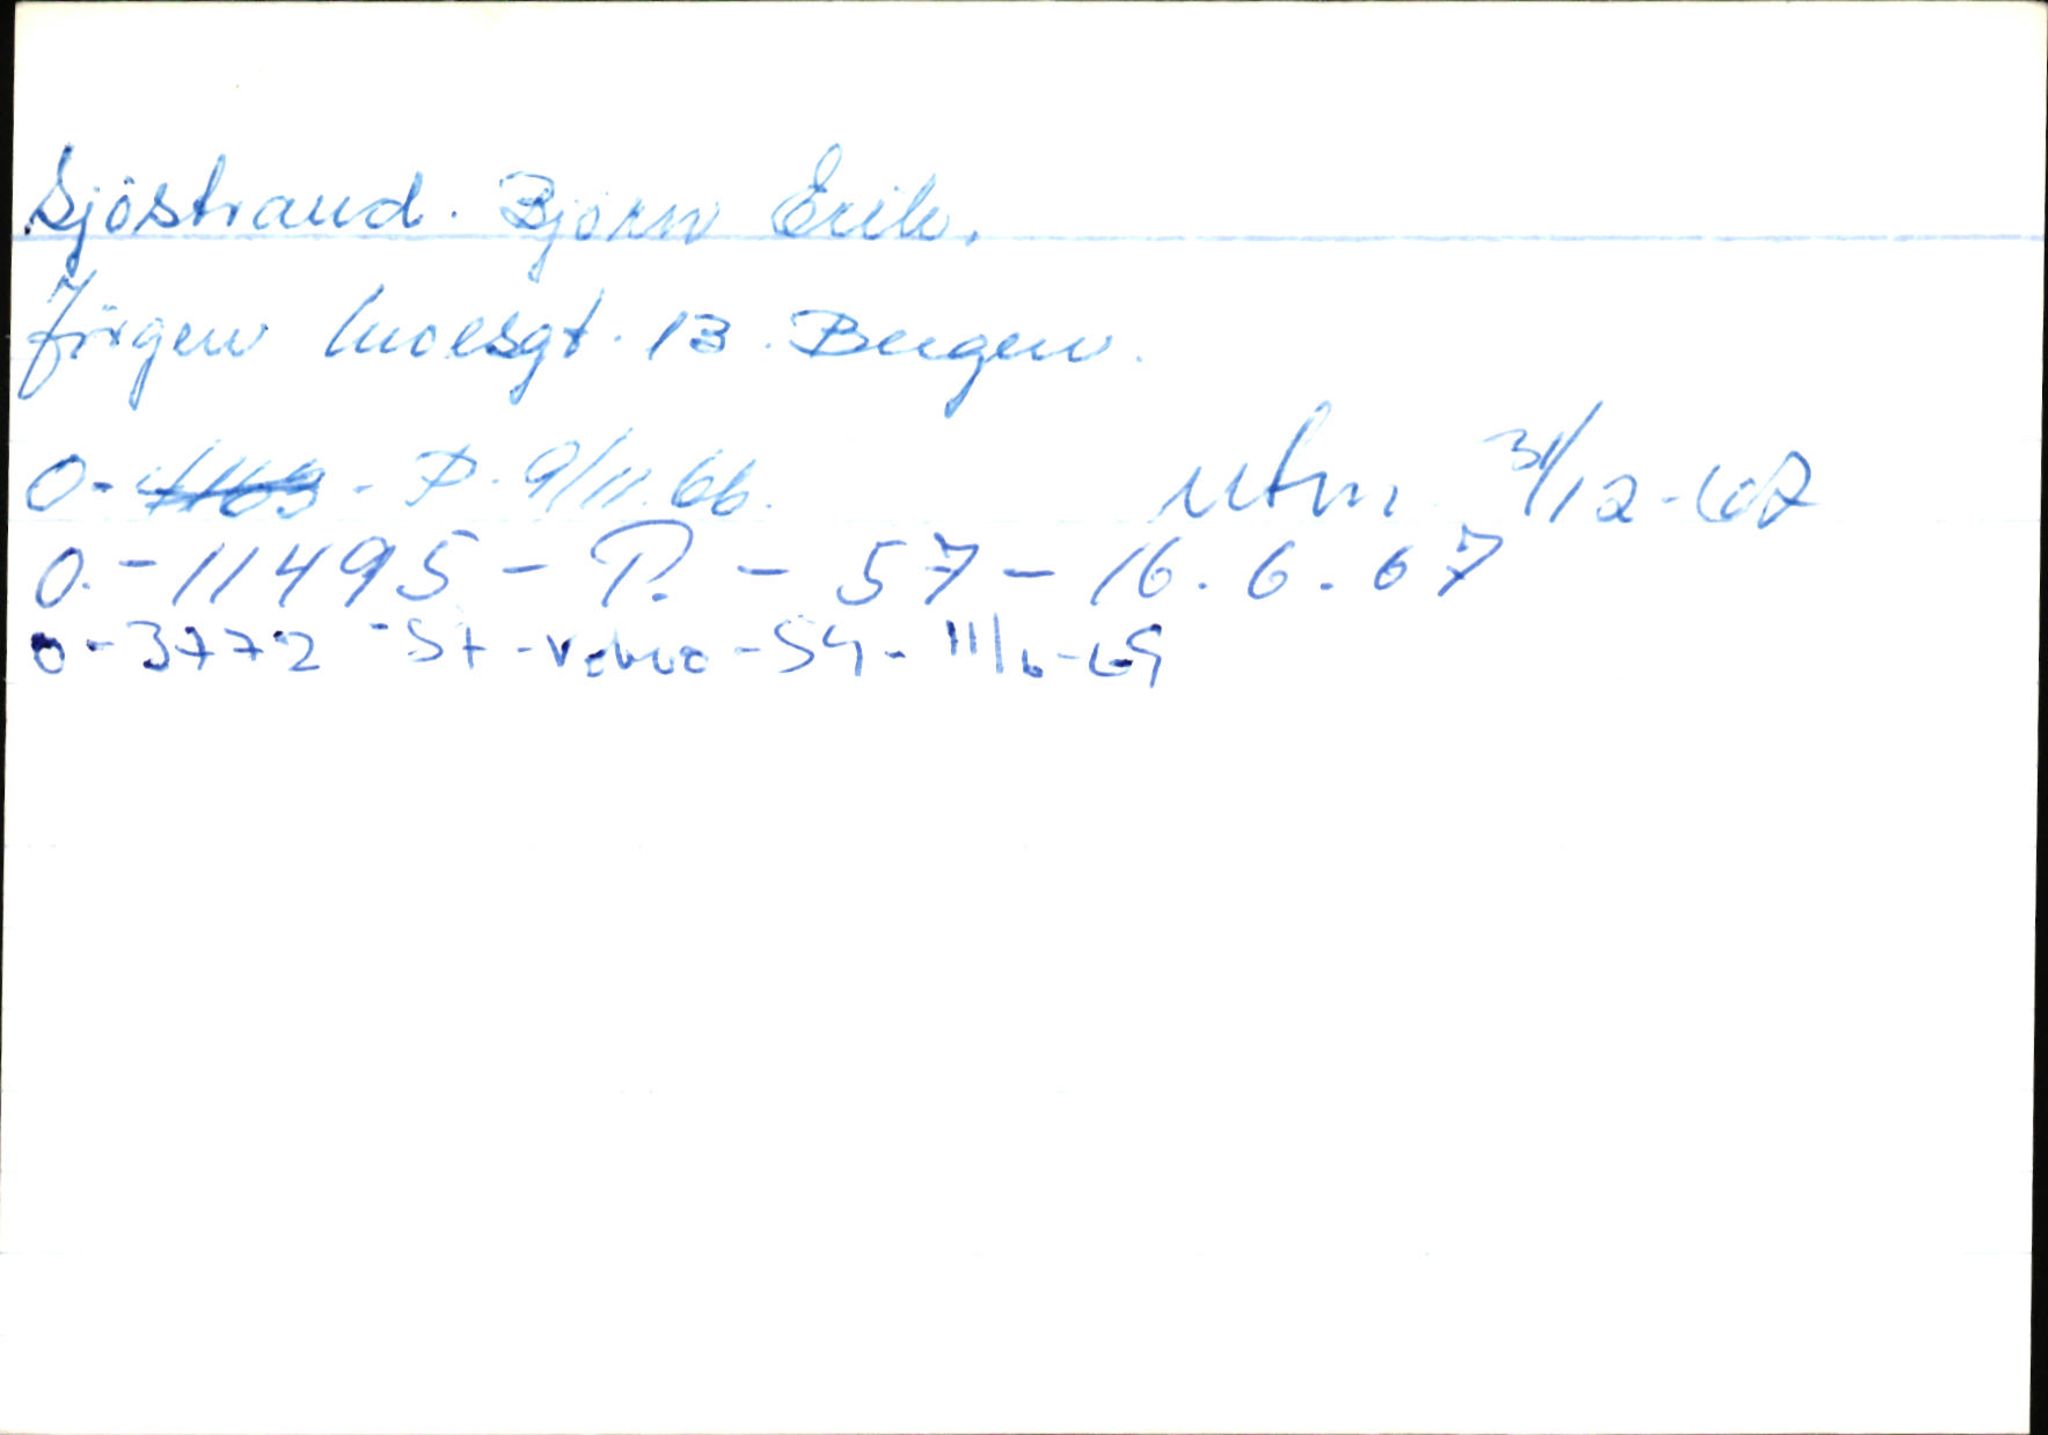 Sjöstrand. Björn Erik.
Jörgen Moesgt. 13. Bergen.
O- 4163 - P. 9/11.66. Utm 31/12-67
O.-11495 - P. - 57 - 16.6.67
O-3772 - St - Volvo - 59 - 11/6-69